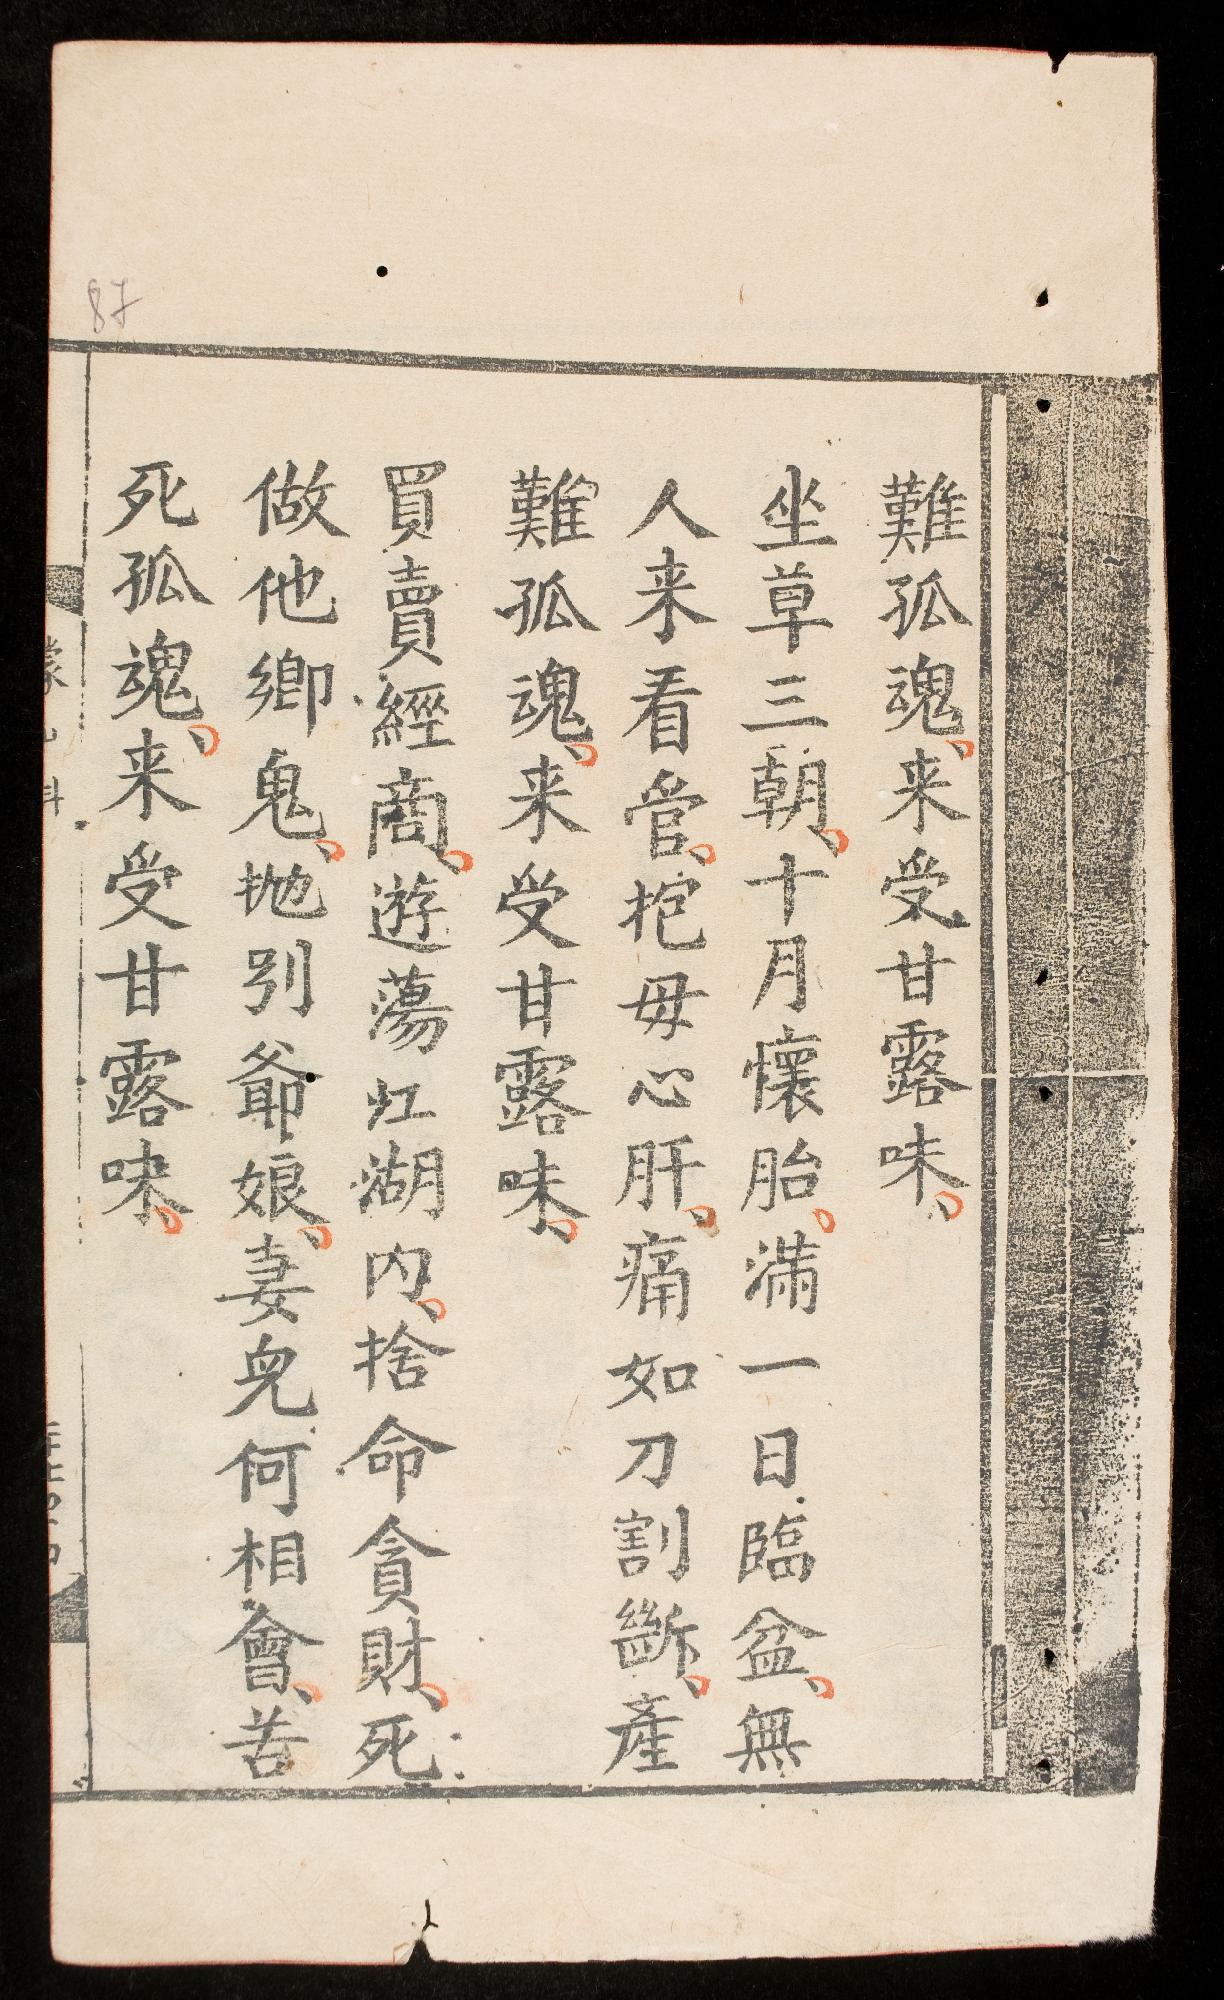 難孤魂、来受甘露味、
坐草三朝、十月懷胎、満一日臨盆、無
人来看管、挖母心肝、痛如刀割斷、產
難孤魂、来受甘露味、
買賣經商、遊蕩江湖内、捨命貪財、死
做他鄉鬼、拋别爺娘、妻兒何相會、苦
死孤魂、来受甘露味、
87